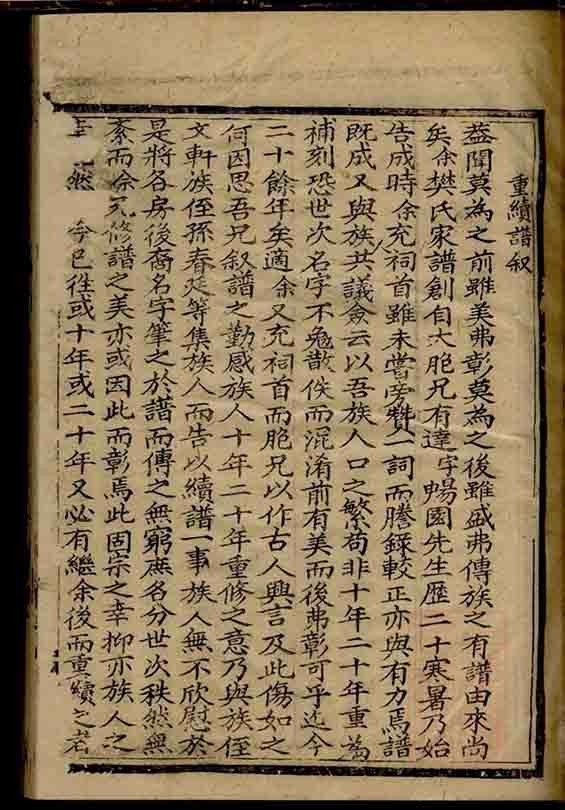 重續譜叙
蓋聞莫為之前雖美弗彰莫為之後雖盛弗傳族之有譜由來尚
矣余樊氏家譜創自大胞兄有達字暢園先生歷二十寒暑乃始
告成時余充祠首雖未嘗旁贊一詞而謄錄較正亦與有力焉譜
既成又與族共議僉云以吾族人口之繁苟非十年二十年重為
補刻恐世次名字不免散佚而混淆前有美而後弗彰可乎迄今
二十餘年矣適余又充祠首而胞兄以作古人興言及此傷如之
何因思吾兄叙譜之勤感族人十年二十年重修之意乃與族侄
文軒族侄孫春延等集族人而告以續譜一事族人無不欣慰於
是將各房後裔名字筆之於譜而傳之無窮庶名分世次秩然無
紊而余兄修譜之美亦或因此而彰焉此固宗之幸抑亦族人之
然今已往或十年或二十年又必有繼余後而重續之者